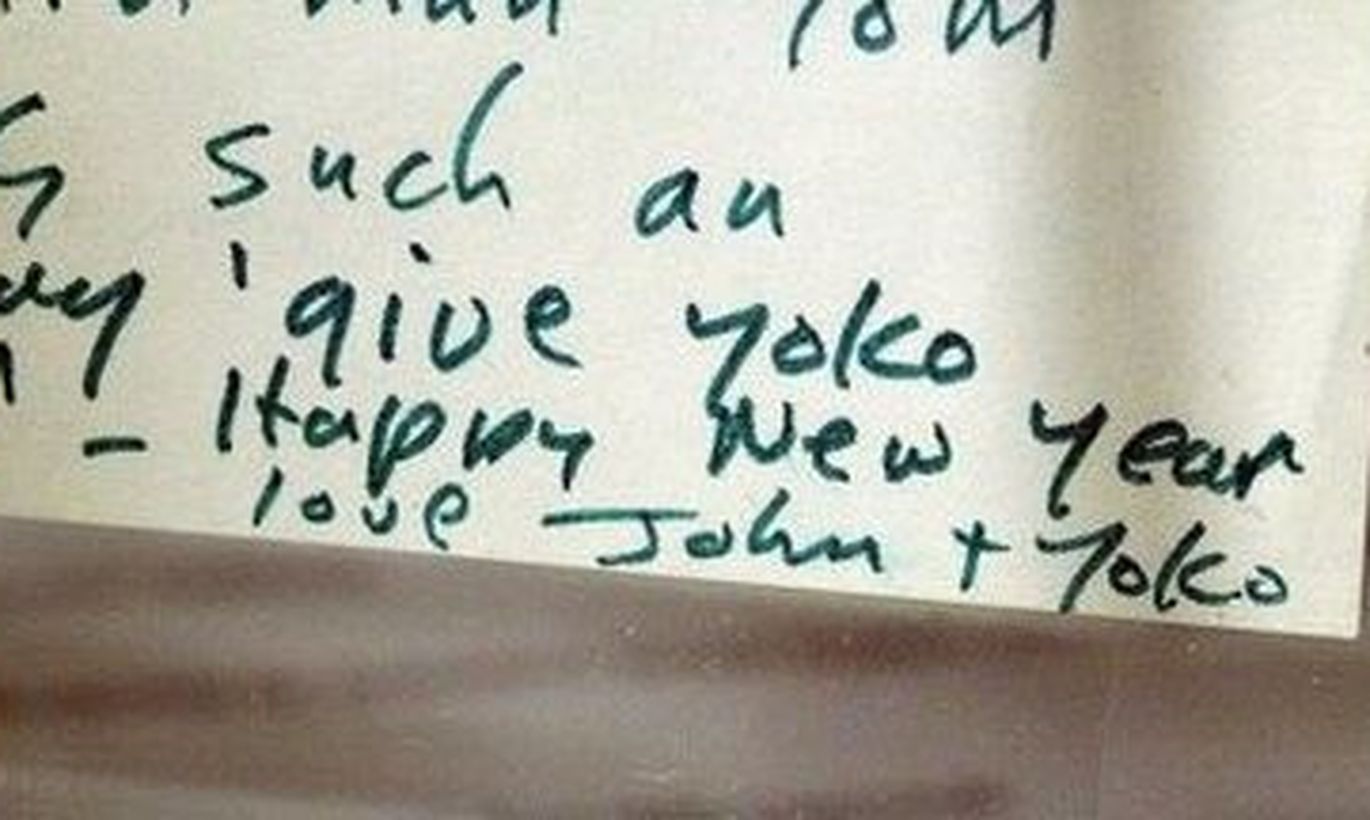 such an
'give Yoko
– Happy New Year
love John + Yoko